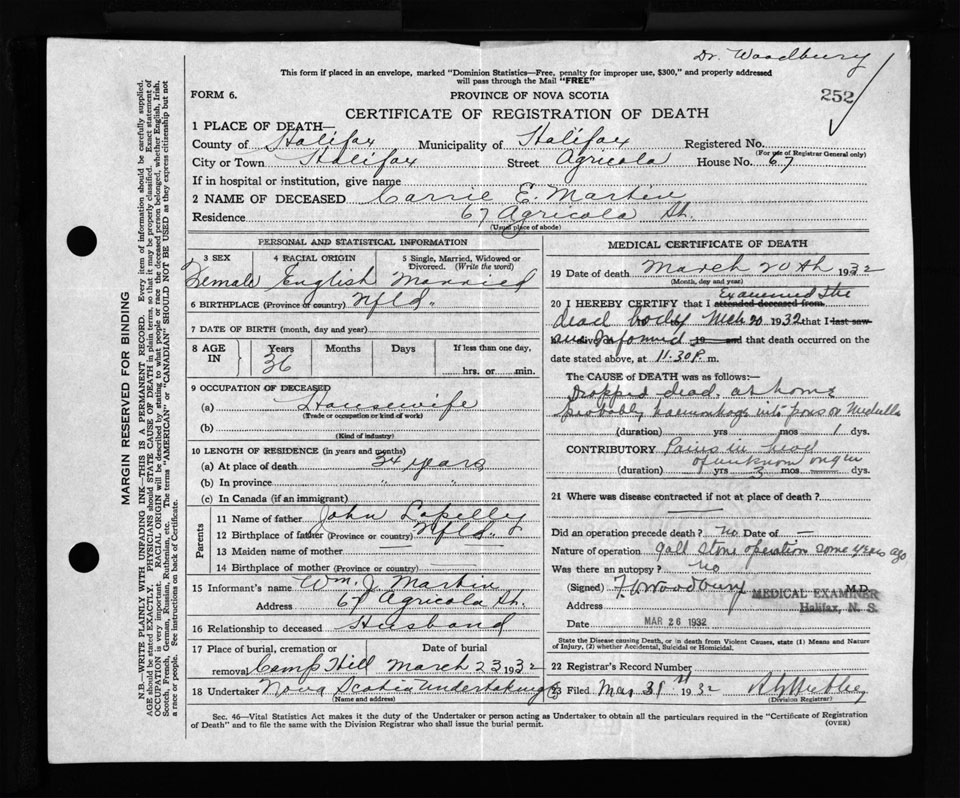 Dr. Woodbury
This form if placed in an envelope, marked "Dominion Statistics—Free, penalty for improper use, $300," and properly addressed
will pass through the Mail "FREE"
FORM 6.
PROVINCE OF NOVA SCOTIA
252
CERTIFICATE OF REGISTRATION OF DEATH
1 PLACE OF DEATH—
County of Halifax Municipality of Halifax Registered No.
(For use of Registrar General only)
City or Town Halifax Street Agricola House No. 67
If in hospital or institution, give name
2 NAME OF DECEASED Carrie E. Martin
Residence 67 Agricola St.
(Usual place of abode)
PERSONAL AND STATISTICAL INFORMATION
3 SEX 4 RACIAL ORIGIN 5 Single, Married, Widowed or Divorced. (Write the word)
Female English Married
6 BIRTHPLACE (Province or country) Nfld.
7 DATE OF BIRTH (month, day and year)
8 AGE IN Years Months Days If less than one day,
36 hrs. or min.
9 OCCUPATION OF DECEASED
(a) Housewife
(Trade or occupation or kind of work)
(b)
(Kind of industry)
10 LENGTH OF RESIDENCE (in years and months)
(a) At place of death 34 years
(b) In province " "
(c) In Canada (if an immigrant)
Parents
11 Name of father John
12 Birthplace of father (Province or country) Nfld.
13 Maiden name of mother —
14 Birthplace of mother (Province or country) —
15 Informant's name Wm. J. Martin
Address 67 Agricola St.
16 Relationship to deceased Husband
17 Place of burial, cremation or removal Date of burial
Camp Hill March 23 1932
18 Undertaker Nova Scotia Undertaking Co
(Name and address)
MEDICAL CERTIFICATE OF DEATH
19 Date of death March 20th 1932
(Month, day and year)
20 I HEREBY CERTIFY that I attended deceased from Examined the
dead body Mch 20 1932 that I last saw
and informed 19 and that death occurred on
date stated above, at 11.30 P. m.
The CAUSE of DEATH was as follows:—
Dropped dead at home
probably haemorrhage into pons or Medulla
(duration) yrs mos 1 dys.
CONTRIBUTORY Pains in head
of unknown origin
(duration) yrs 3 mos dys.
21 Where was disease contracted if not at place of death?
Did an operation precede death? no Date of —
Nature of operation gall stone operation some years ago
Was there an autopsy? no
(Signed) F. V. Woodbury M.D.
MEDICAL EXAMINER
Address Halifax, N. S.
Date MAR 26 1932
State the Disease causing Death, or in death from Violent Causes, state (1) Means and Nature
of Injury, (2) whether Accidental, Suicidal or Homicidal.
22 Registrar's Record Number
23 Filed Mar 31st 1932
(Division Registrar)
Sec. 46—Vital Statistics Act makes it the duty of the Undertaker or person acting as Undertaker to obtain all the particulars required in the "Certificate of Registration
of Death" and to file the same with the Division Registrar who shall issue the burial permit.
(OVER)
MARGIN RESERVED FOR BINDING
N.B.—WRITE PLAINLY WITH UNFADING INK—THIS IS A PERMANENT RECORD. Every item of information should be carefully supplied.
AGE should be stated EXACTLY. PHYSICIANS should STATE CAUSE OF DEATH in plain terms, so that it may be properly classified. Exact statement of
OCCUPATION is very important. RACIAL ORIGIN will be described by stating to what people or race the deceased person belonged, whether English, Irish,
Scotch, French, German, Russian, Ruthenian, etc. The terms "AMERICAN" or "CANADIAN" SHOULD NOT BE USED as they express citizenship but not
a race or people. See instructions on back of Certificate.